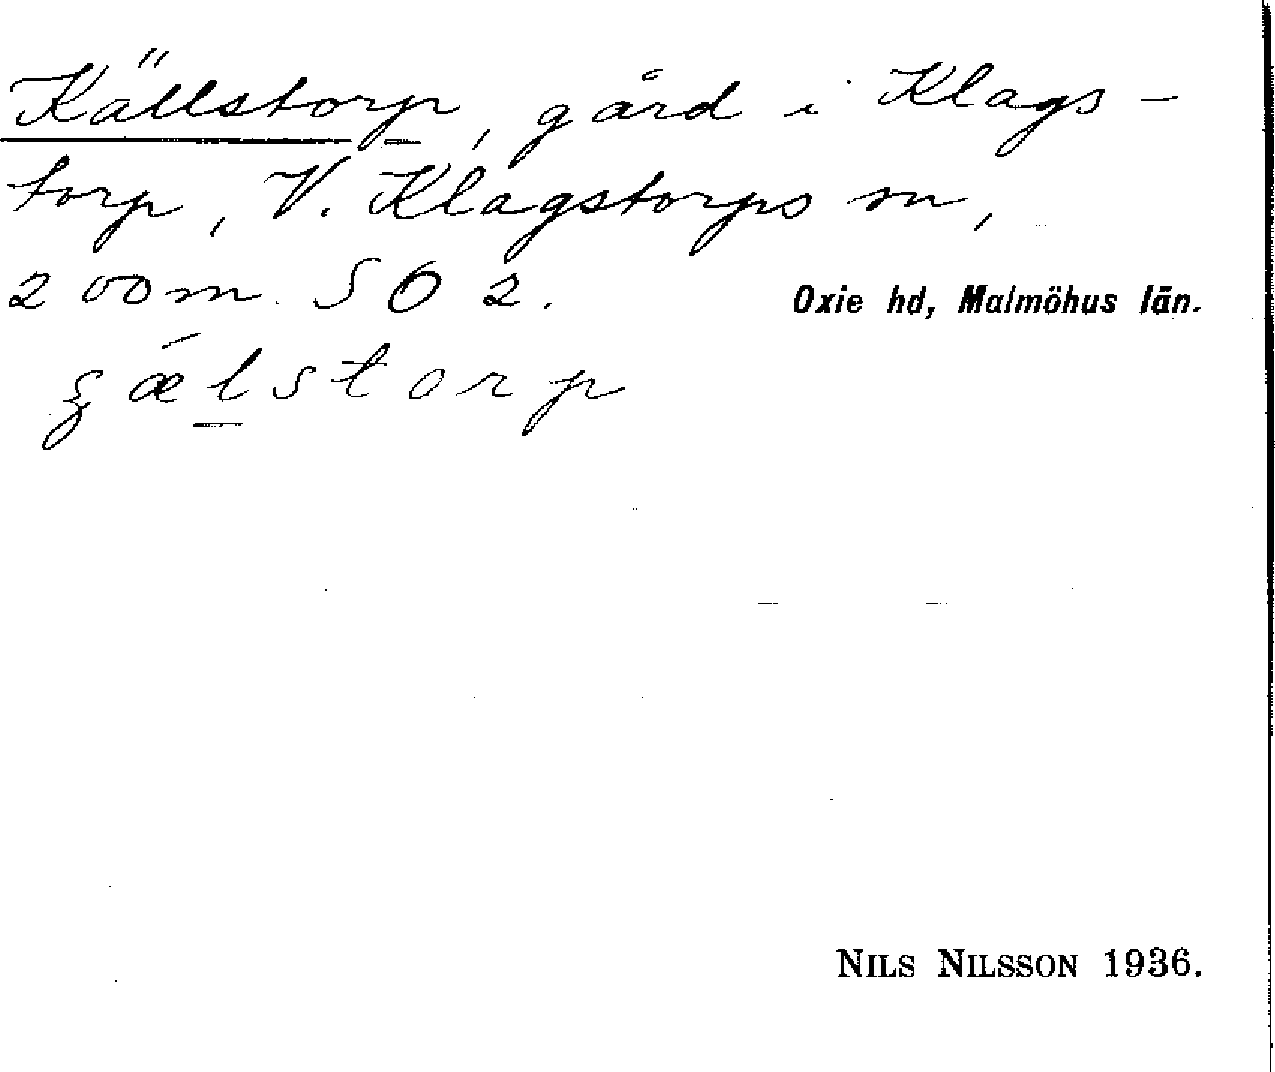 Källstorp, gård i Klags-
torp, V. Klagstorps sn,
200m. SO 2.
Oxie hd, Malmöhus län.
ʒǽlstorp
NILS NILSSON 1936.